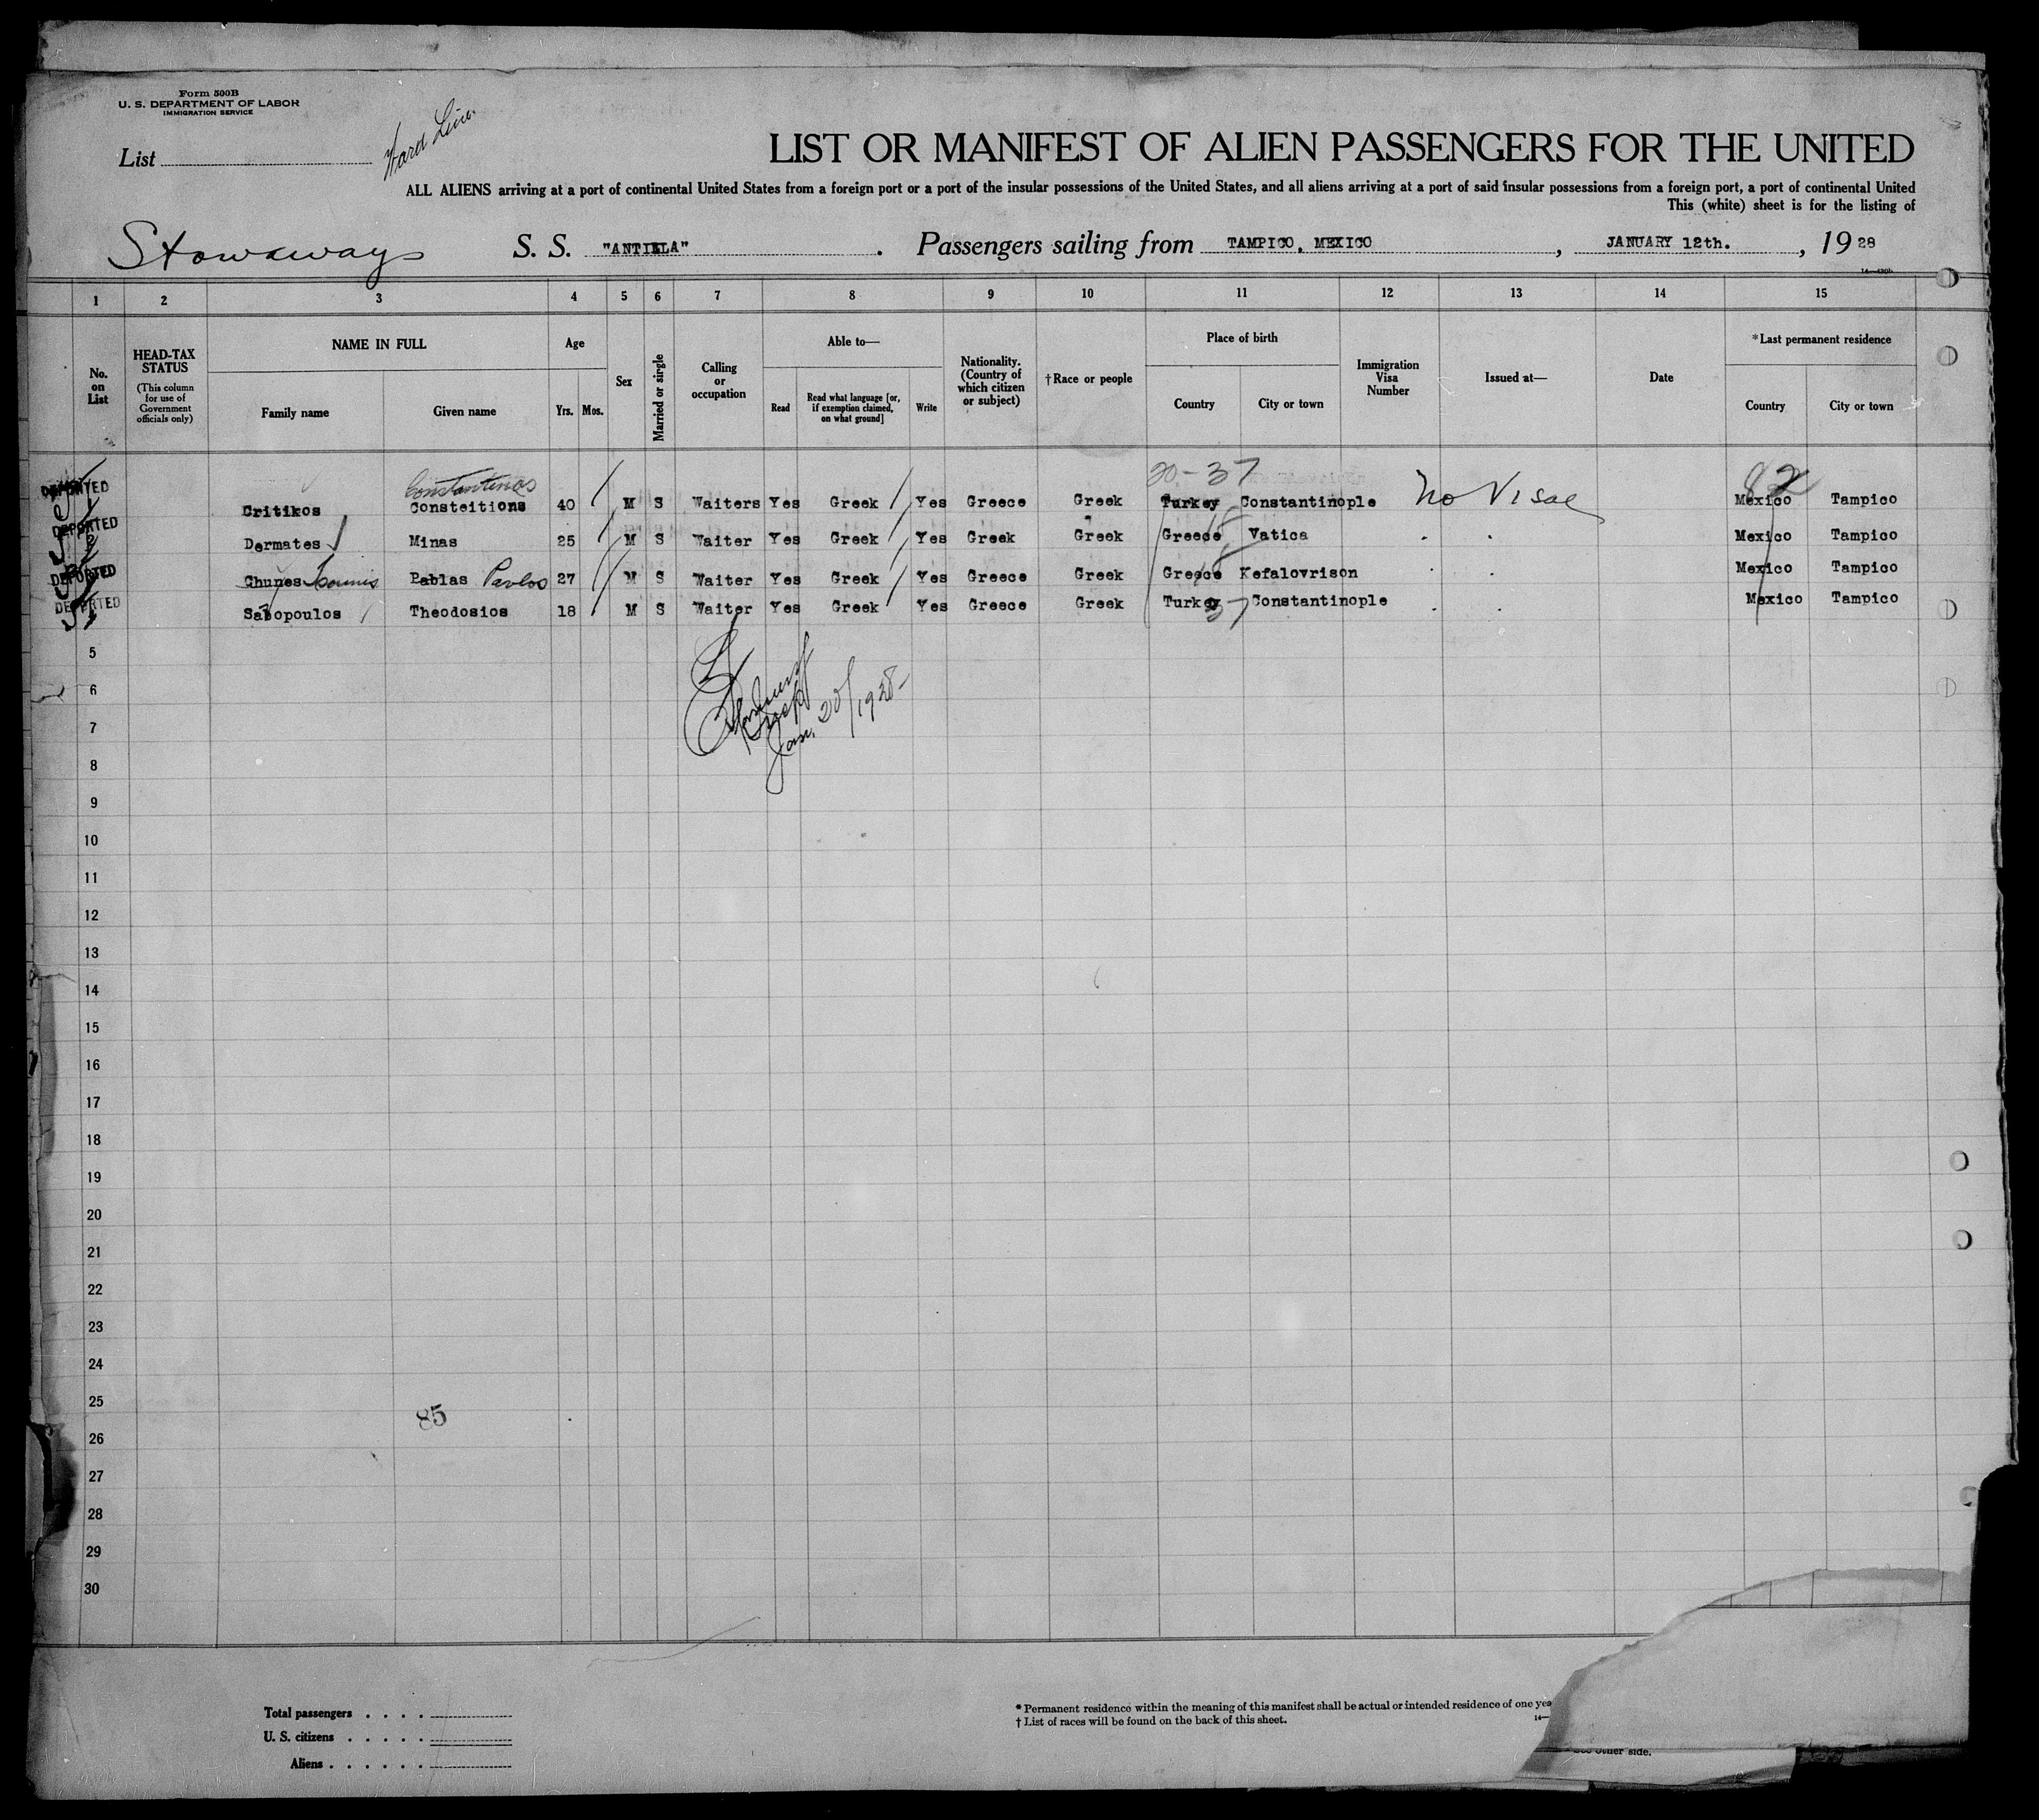 Form 500B
U. S. DEPARTMENT OF LABOR
IMMIGRATION SERVICE
List
Ward Line.
LIST OR MANIFEST OF ALIEN PASSENGERS FOR THE UNITED
ALL ALIENS arriving at a port of continental United States from a foreign port or a port of the insular possessions of the United States, and all aliens arriving at a port of said insular possessions from a foreign port, a port of continental United
This (white) sheet is for the listing of
Stowaways S. S. "ANTILLA". Passengers sailing from TAMPICO, MEXICO, JANUARY 12th., 1928
1 2 3 4 5 6 7 8 9 10 11 12 13 14 15
No. on List
HEAD-TAX STATUS
(This column for use of Government officials only)
NAME IN FULL
Family name Given name
Age
Yrs. Mos.
Sex
Married or single
Calling or occupation
Able to—
Read
Read what language [or, if exemption claimed, on what ground]
Write
Nationality. (Country of which citizen or subject)
†Race or people
Place of birth
Country City or town
Immigration Visa Number
Issued at—
Date
*Last permanent residence
Country City or town
Constantinos 20-37 82
DEPORTED 1 Critikos Consteitions 40 M S Waiters Yes Greek Yes Greece Greek Turkey Constantinople No Visae Mexico Tampico
DEPORTED 2 Dermates Minas 25 M S Waiter Yes Greek Yes Greek Greek Greece Vatica Mexico Tampico
DEPORTED Chunes Pablas Pavlos 27 M S Waiter Yes Greek Yes Greece Greek Greece Kefalovrison Mexico Tampico
DEPORTED Sabopoulos Theodosios 18 M S Waiter Yes Greek Yes Greece Greek Turkey 37 Constantinople Mexico Tampico
5
6
7
Jan. 20/1928-
8
9
10
11
12
13
14
15
16
17
18
19
20
21
22
23
24
25
85
26
27
28
29
30
Total passengers
U. S. citizens
Aliens
* Permanent residence within the meaning of this manifest shall be actual or intended residence of one yea
† List of races will be found on the back of this sheet.
14—
other side.